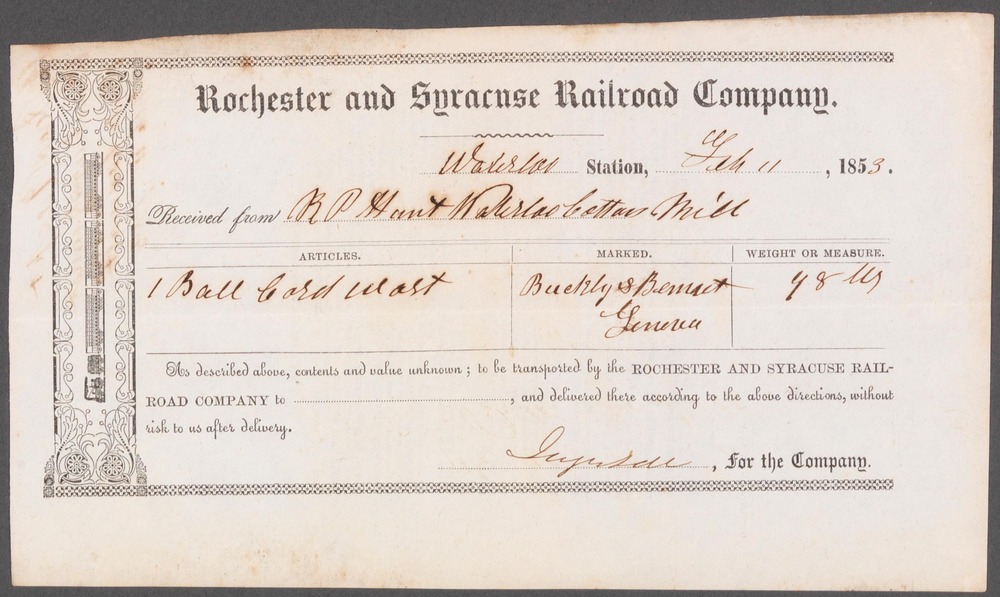 Rochester and Syracuse Railroad Company.
Waterloo Station, Feb 11, 1853.
Received from R P Hunt Waterloo Cotton Mill
ARTICLES. MARKED. WEIGHT OR MEASURE.
1 Ball Cord Buckly & Bennet 98 lbs
Geneva
As described above, contents and value unknown; to be transported by the ROCHESTER AND SYRACUSE RAIL-
ROAD COMPANY to , and delivered there according to the above directions, without
risk to us after delivery.
, For the Company.